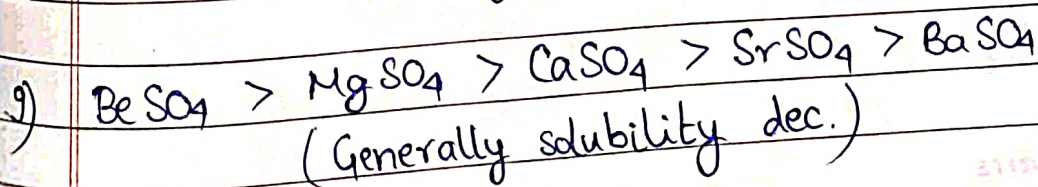 9) BeSO₄ > MgSO₄ > CaSO₄ > SrSO₄ > BaSO₄
(Generally solubility dec.)